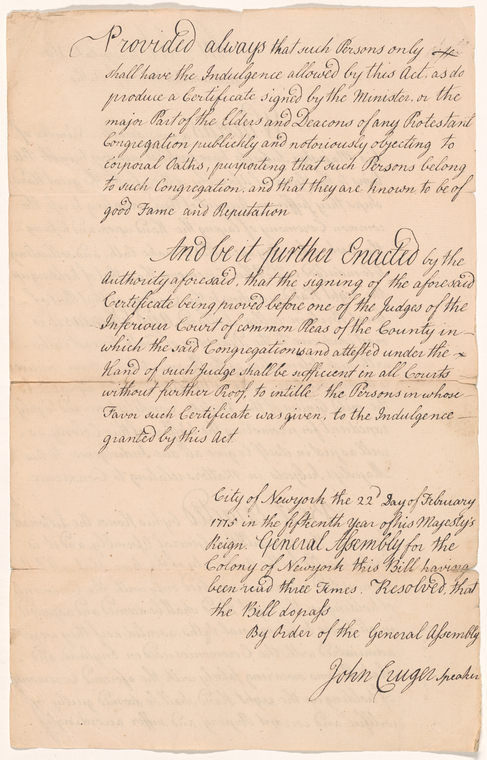 Provided always that such Persons only
shall have the Indulgence allowed by this Act, as do
produce a Certificate signed by the Minister, or the
major Part of the Elders and Deacons of any Protestant
Congregation publickly and notoriously objecting to
corporal Oaths, purporting that such Persons belong
to such Congregation, and that they are known to be of
good Fame and Reputation
And be it further Enacted by the
Authority aforesaid, that the signing of the aforesaid
Certificate being proved before one of the Judges of the
Inferiour Court of common Pleas of the County in
which the said Congregation is and attested under the
Hand of such Judge shall be sufficient in all Courts
without further Proof, to intitle the Persons in whose
Favor such Certificate was given, to the Indulgence
granted by this Act
City of Newyork the 22d Day of February
1775 in the fifteenth Year of his Majesty's
Reign. General Assembly for the
Colony of Newyork this Bill having
been read three Times. Resolved, that
the Bill do pass
By Order of the General Assembly
John Cruger Speaker